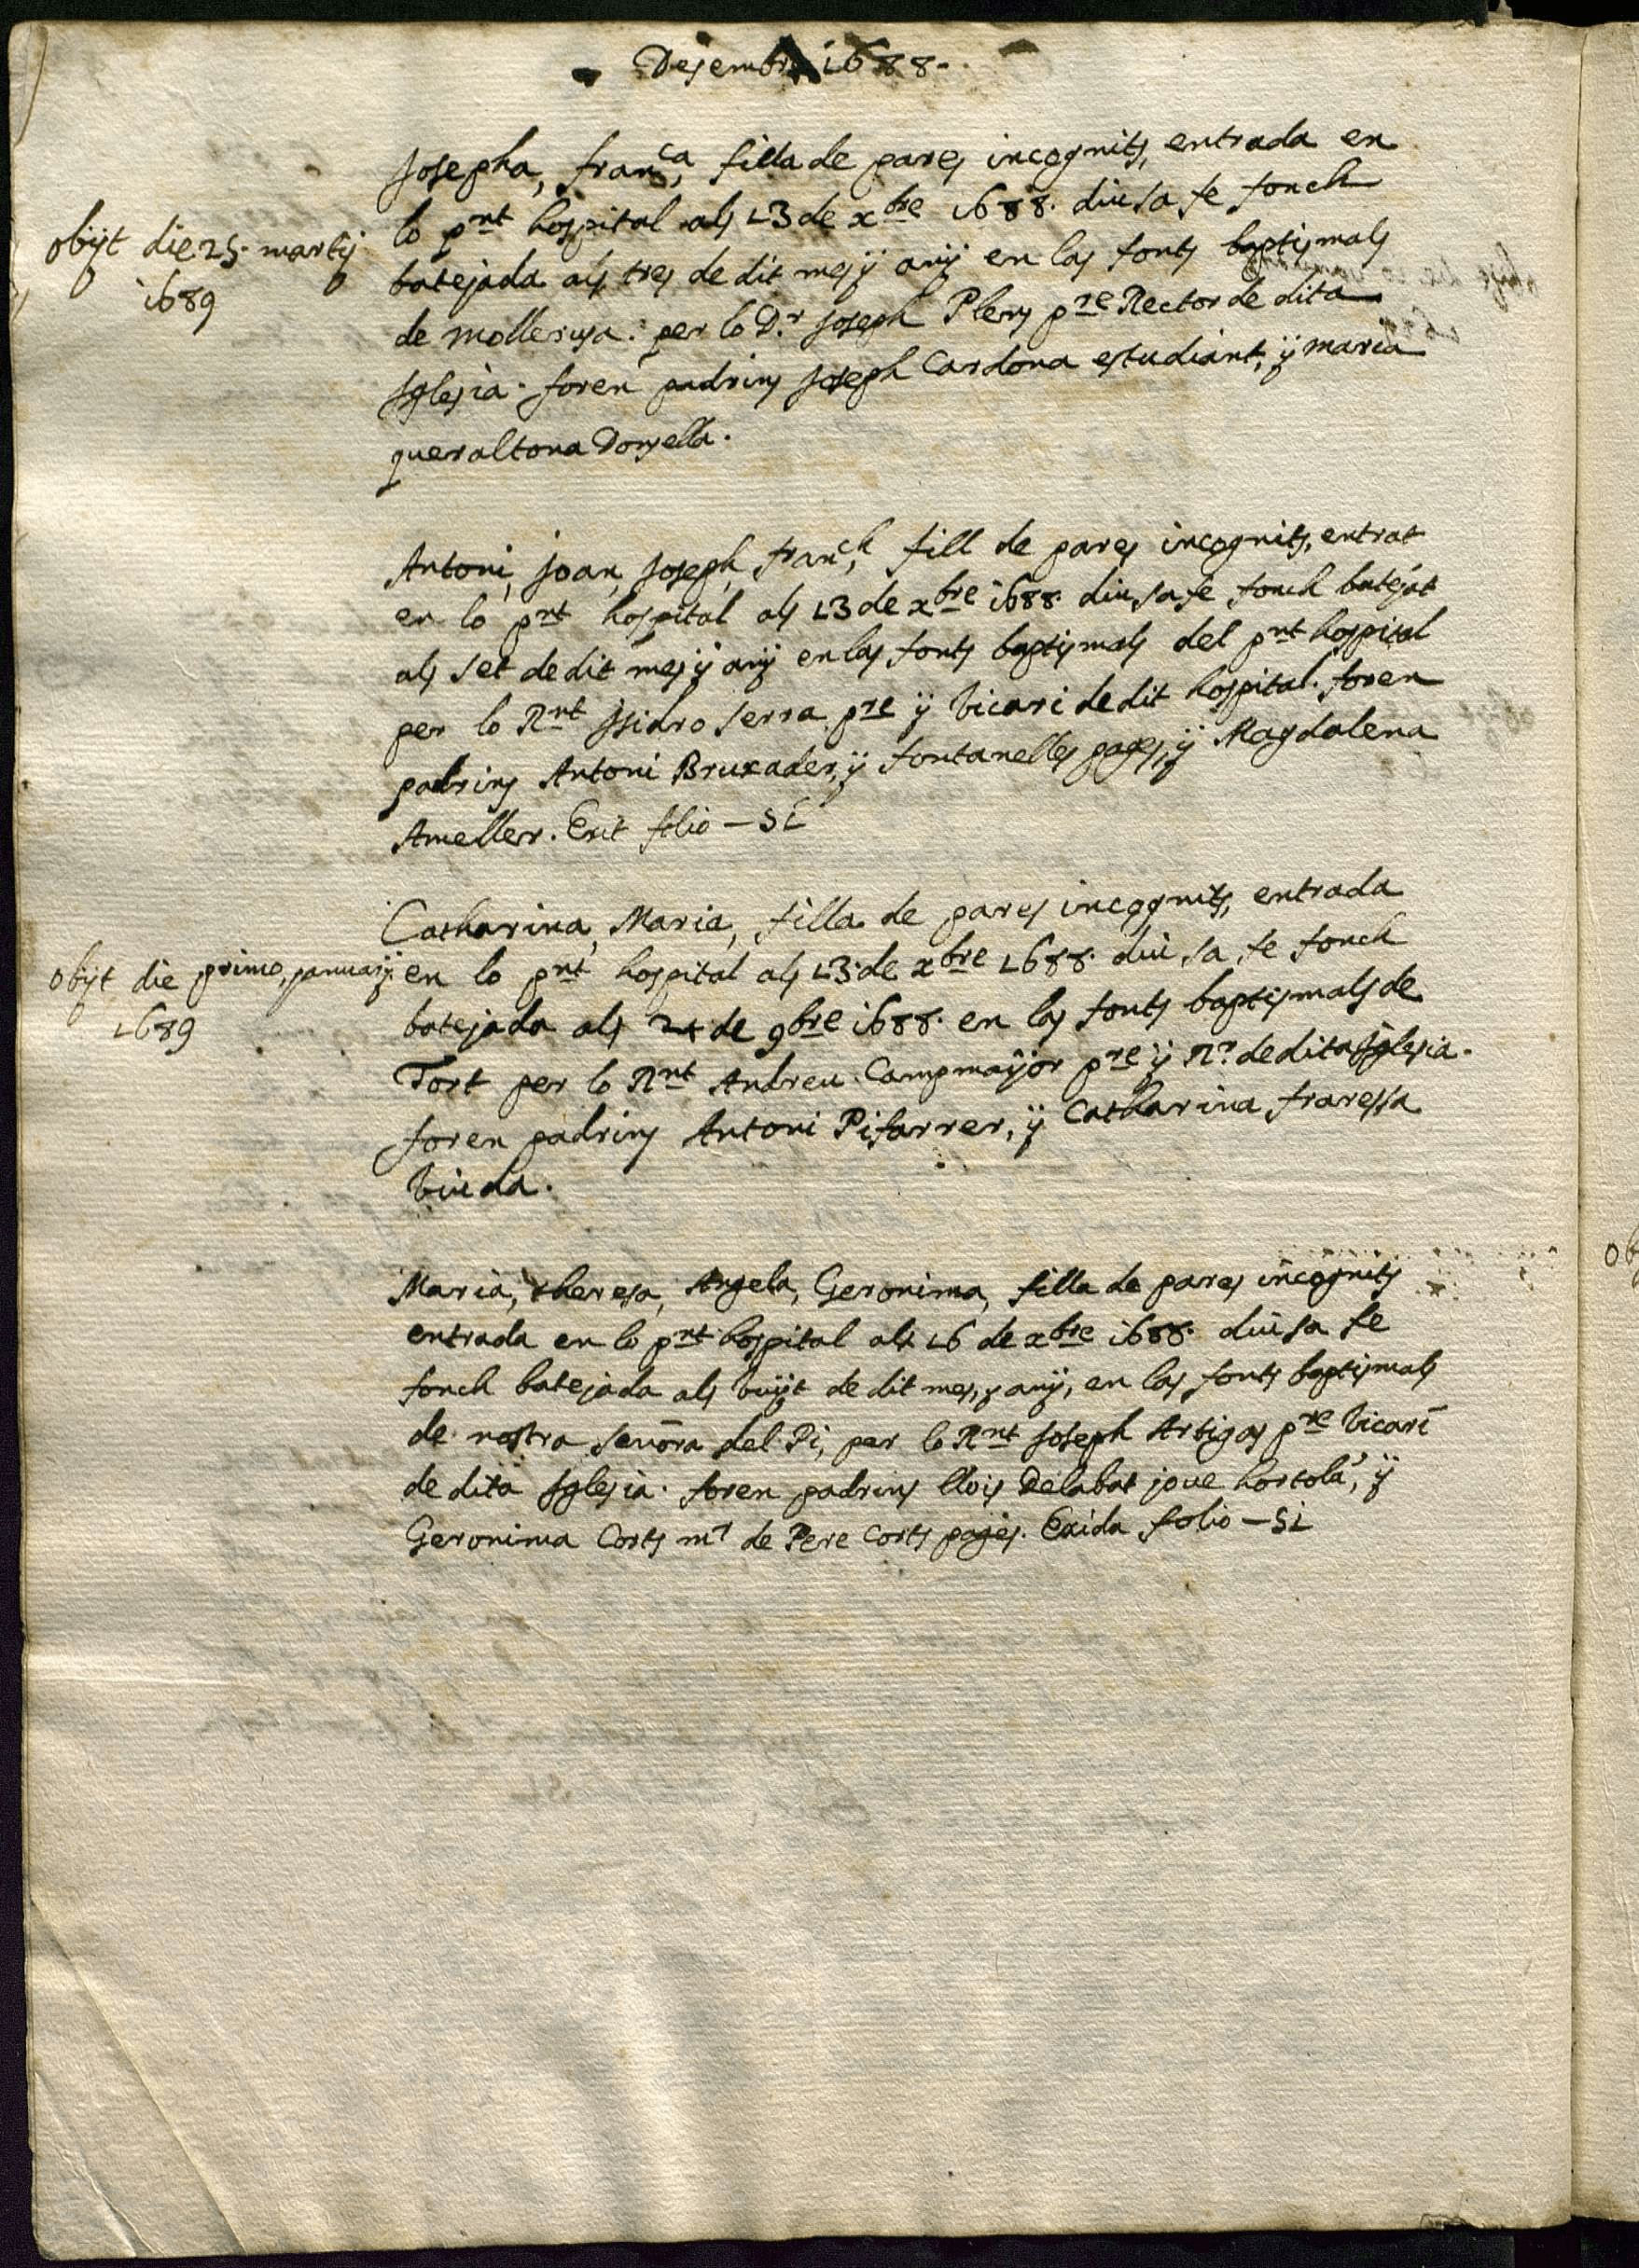 Desembre 1688.
Josepha, Fran.ca, filla de pares incognits, entrada en
lo pnt hospital als 13 de xbre 1688. diu sa fe fonch
obijt die 25. martij
1689
batejada als tres de dit mes ÿ anÿ en las fonts baptismals
de mollerusa. per lo D.r Joseph Plens pre Rector de dita
Iglesia. foren padrins Joseph Cardona estudiant, ÿ maria
queraltona Donsella.
Antoni, Joan, Joseph, Fran.ch, fill de pares incognits, entrat
en lo pnt hospital als 13 de xbre 1688. diu sa fe fonch batejat
als set de dit mes ÿ anÿ en las fonts baptismals del pnt hospital
per lo Rnt Isidro Serra pre ÿ Vicari de dit hospital. foren
padrins Antoni Bruxader, ÿ fontanelles pages, ÿ Magdalena
Ameller. Exit folio - 51
Catharina, Maria, filla de pares incognits, entrada
obijt die primo, januarij
1689
en lo pnt hospital als 13. de xbre 1688. diu sa fe fonch
batejada als 24 de 9bre 1688. en las fonts baptismals de
Tort per lo Rnt Andreu Campmaÿor pre ÿ Rr. de dita Iglesia.
foren padrins Antoni Pifarrer, ÿ Catharina fraressa
Viuda.
Maria, theresa, Angela, Geronima, filla de pares incognits
entrada en lo pnt hospital als 16 de xbre 1688. diu sa fe
fonch batejada als vuÿt de dit mes, ÿ anÿ, en las fonts baptismals
de nostra señora del Pi, per lo Rnt Joseph Artigas pre Vicari
de dita Iglesia. foren padrins llois Delabat jove hortolá, ÿ
Geronima Corts mr de Pere Corts pages. Exida folio - 51